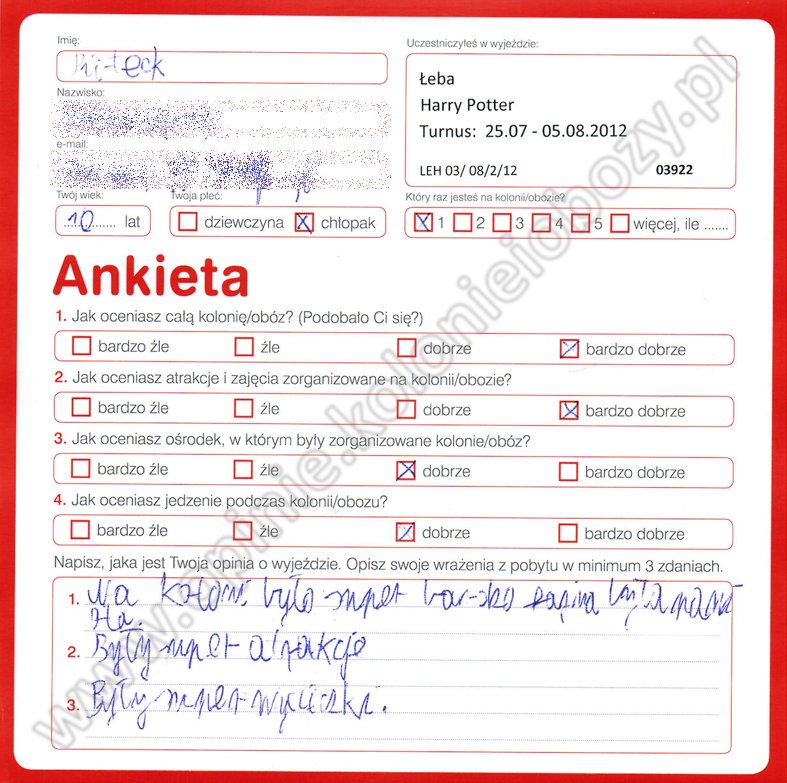 Imię:
Uczestniczyłeś w wyjeździe:
Łeba
Harry Potter
Turnus: 25.07 - 05.08.2012
LEH 03/ 08/2/12 03922
Nazwisko:
e-mail:
Twój wiek: Twoja płeć: Który raz jesteś na kolonii/obozie?
10 lat dziewczyna X chłopak X 1 2 3 4 5 więcej, ile .......
Ankieta
1. Jak oceniasz całą kolonię/obóz? (Podobało Ci się?)
bardzo źle źle dobrze X bardzo dobrze
2. Jak oceniasz atrakcje i zajęcia zorganizowane na kolonii/obozie?
bardzo źle źle dobrze X bardzo dobrze
3. Jak oceniasz ośrodek, w którym były zorganizowane kolonie/obóz?
bardzo źle źle X dobrze bardzo dobrze
4. Jak oceniasz jedzenie podczas kolonii/obozu?
bardzo źle źle X dobrze bardzo dobrze
Napisz, jaka jest Twoja opinia o wyjeździe. Opisz swoje wrażenia z pobytu w minimum 3 zdaniach.
1. Na koloni było super była pani
2. Były super atrakcje
3. Były super wycieczki.
www.opinie.kolonieiobozy.pl